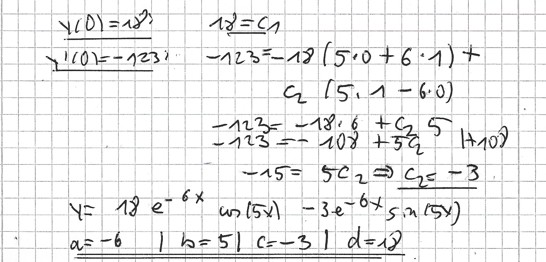 y(0)=18; 18=c1
y'(0)=-123; -123=-18(5·0+6·1)+
c2 (5·1-6·0)
-123=-18·6+c2 5
-123=-108+5c2 |+108
-15= 5c2 ⇒ c2=-3
y= 18 e^-6x cos(5x) -3e^-6x sin(5x)
a=-6 | b=5 | c=-3 | d=18